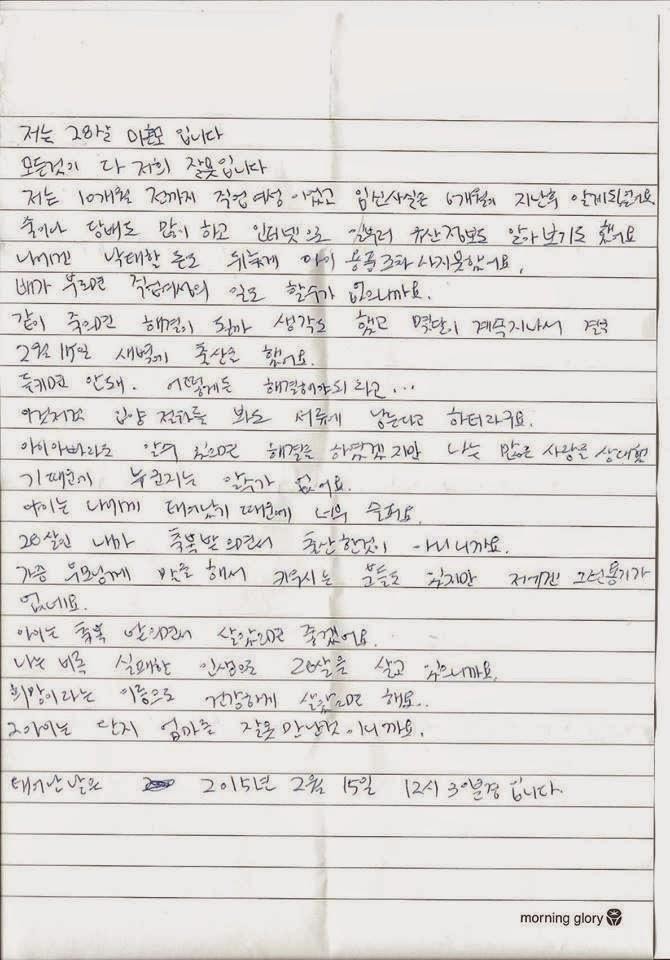 저는 28살 미혼모 입니다
모든것이 다 저희 잘못입니다
저는 10개월 전까지 직업여성 이었고 임신사실은 6개월이 지난후 알게되었어요
술이나 담배도 많이 하고 인터넷으로 일부러 유산정보도 알아보기도 했어요
나에겐 낙태할 돈도 뒤늦게 아이 용품조차 사지못했어요.
배가 부르면 직업여성의 일도 할수가 없으니까요.
같이 죽으면 해결이 될까 생각도 했고 몇달이 계속지나서 결국
2월 15일 새벽에 출산을 했어요.
들키면 안돼. 어떻게든 해결해야되 라고...
이것저것 입양 절차를 봐도 서류에 남는다고 하더라구요.
아이아빠라도 알수 있으면 해결을 하였겠지만 나는 많은 사람을 상대했
기때문에 누군지는 알수가 없어요.
아이는 나에게 태어났기 때문에 너무 슬퍼요.
28살인 내가 축복받으면서 출산한것이 아니니까요.
가끔 부모님께 말을 해서 키우시는 분들도 있지만 저에겐 그런용기가
없네요.
아이는 축복 받으면서 살았으면 좋겠어요.
나는 비록 실패한 인생으로 28살을 살고 있으니까요.
희망이라는 이름으로 건강하게 살았으면 해요..
그아이는 단지 엄마를 잘못만난것 이니까요.
태어난날은 2015년 2월 15일 12시 30분경 입니다.
morning glory